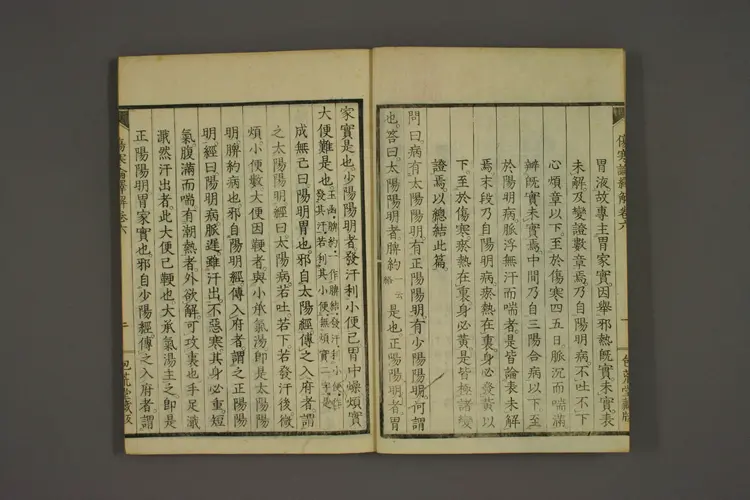 傷寒論繹解卷六
一
包荒堂藏版
胃液故專主胃家實因舉邪熱既實未實表
未解及變證數章焉乃自陽明病不吐不下
心煩章以下至於傷寒四五日脈沉而喘滿
辨既實未實焉中間乃自三陽合病以下至
於陽明病脈浮無汗而喘者是皆論表未解
焉末段乃自陽明病瘀熱在裏身必發黃以
下至於傷寒瘀熱在裏身必黃是皆極諸變
證焉以總結此篇
問曰病有太陽陽明有正陽陽明有少陽陽明何謂
也答曰太陽陽明者脾約一云絡是也正陽陽明者胃
家實是也少陽陽明者發汗利小便已胃中燥煩實
大便難是也
成無己曰陽明胃也邪自太陽經傳之入府者謂
之太陽陽明經曰太陽病若吐若下若發汗後微
煩小便數大便因鞕者與小承氣湯即是太陽陽
明脾約病也邪自陽明經傳入府者謂之正陽陽
明經曰陽明病脈遲雖汗出不惡寒其身必重短
氣腹滿而喘有潮熱者外欲解可攻裏也手足濈
濈然汗出者此大便已鞕也大承氣湯主之即是
正陽陽明胃家實也邪自少陽經傳之入府者謂
傷寒論繹解卷六
二
包荒堂藏版